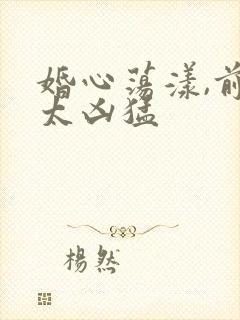 婚心荡漾,前
太凶猛
楊然